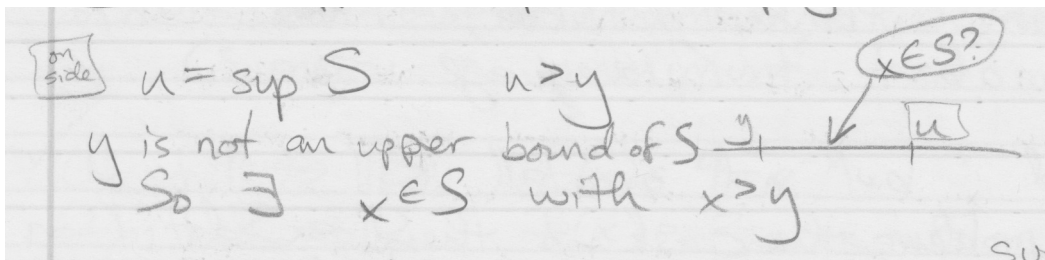 on side
u = sup S u > y x ∈ S?
y is not an upper bound of S y u
So ∃ x ∈ S with x > y